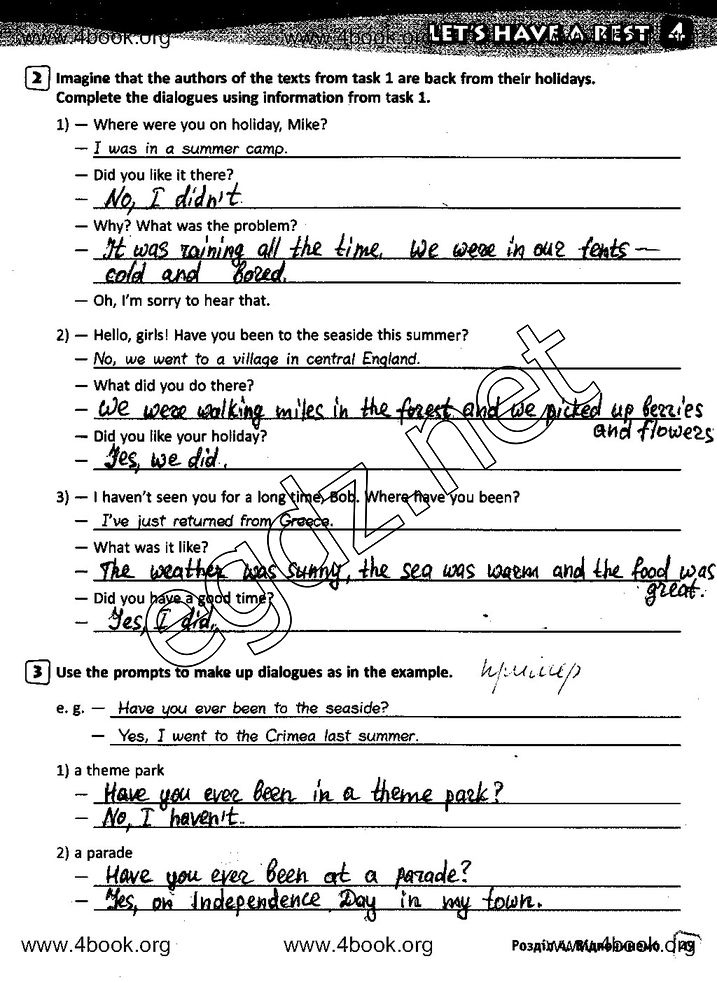 www.4book.org www.4book.org LET'S HAVE A REST 4
2 Imagine that the authors of the texts from task 1 are back from their holidays.
Complete the dialogues using information from task 1.
1) — Where were you on holiday, Mike?
— I was in a summer camp.
— Did you like it there?
— No, I didn't.
— Why? What was the problem?
— It was raining all the time. We were in our tents —
cold and bored.
— Oh, I'm sorry to hear that.
2) — Hello, girls! Have you been to the seaside this summer?
— No, we went to a village in central England.
— What did you do there?
— We were walking miles in the forest and we picked up berries
and flowers
— Did you like your holiday?
— Yes, we did.
3) — I haven't seen you for a long time, Bob. Where have you been?
— I've just returned from Greece.
— What was it like?
— The weather was sunny, the sea was warm and the food was
great.
— Did you have a good time?
— Yes, I did.
egdz.net
3 Use the prompts to make up dialogues as in the example. пример
e. g. — Have you ever been to the seaside?
— Yes, I went to the Crimea last summer.
1) a theme park
— Have you ever been in a theme park?
— No, I haven't.
2) a parade
— Have you ever been at a parade?
— Yes, on Independence Day in my town.
www.4book.org www.4book.org Розділ 4. Відпочинемо www.4book.org 49